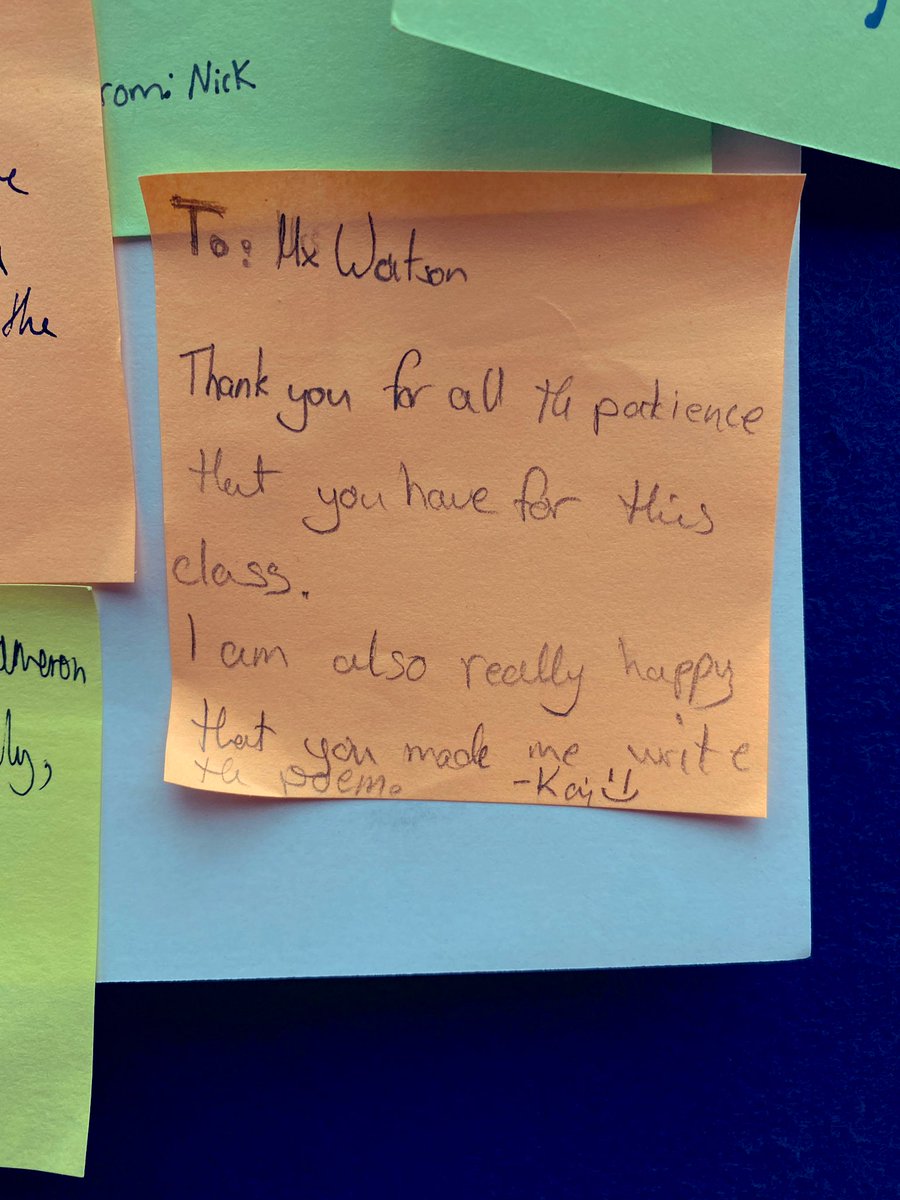 rom: Nick
the
To: Mx Watson
Thank you for all th patience
that you have for this
class.
I am also really happy
that you made me write
th poem. -Kaj :)
ameron
ly,